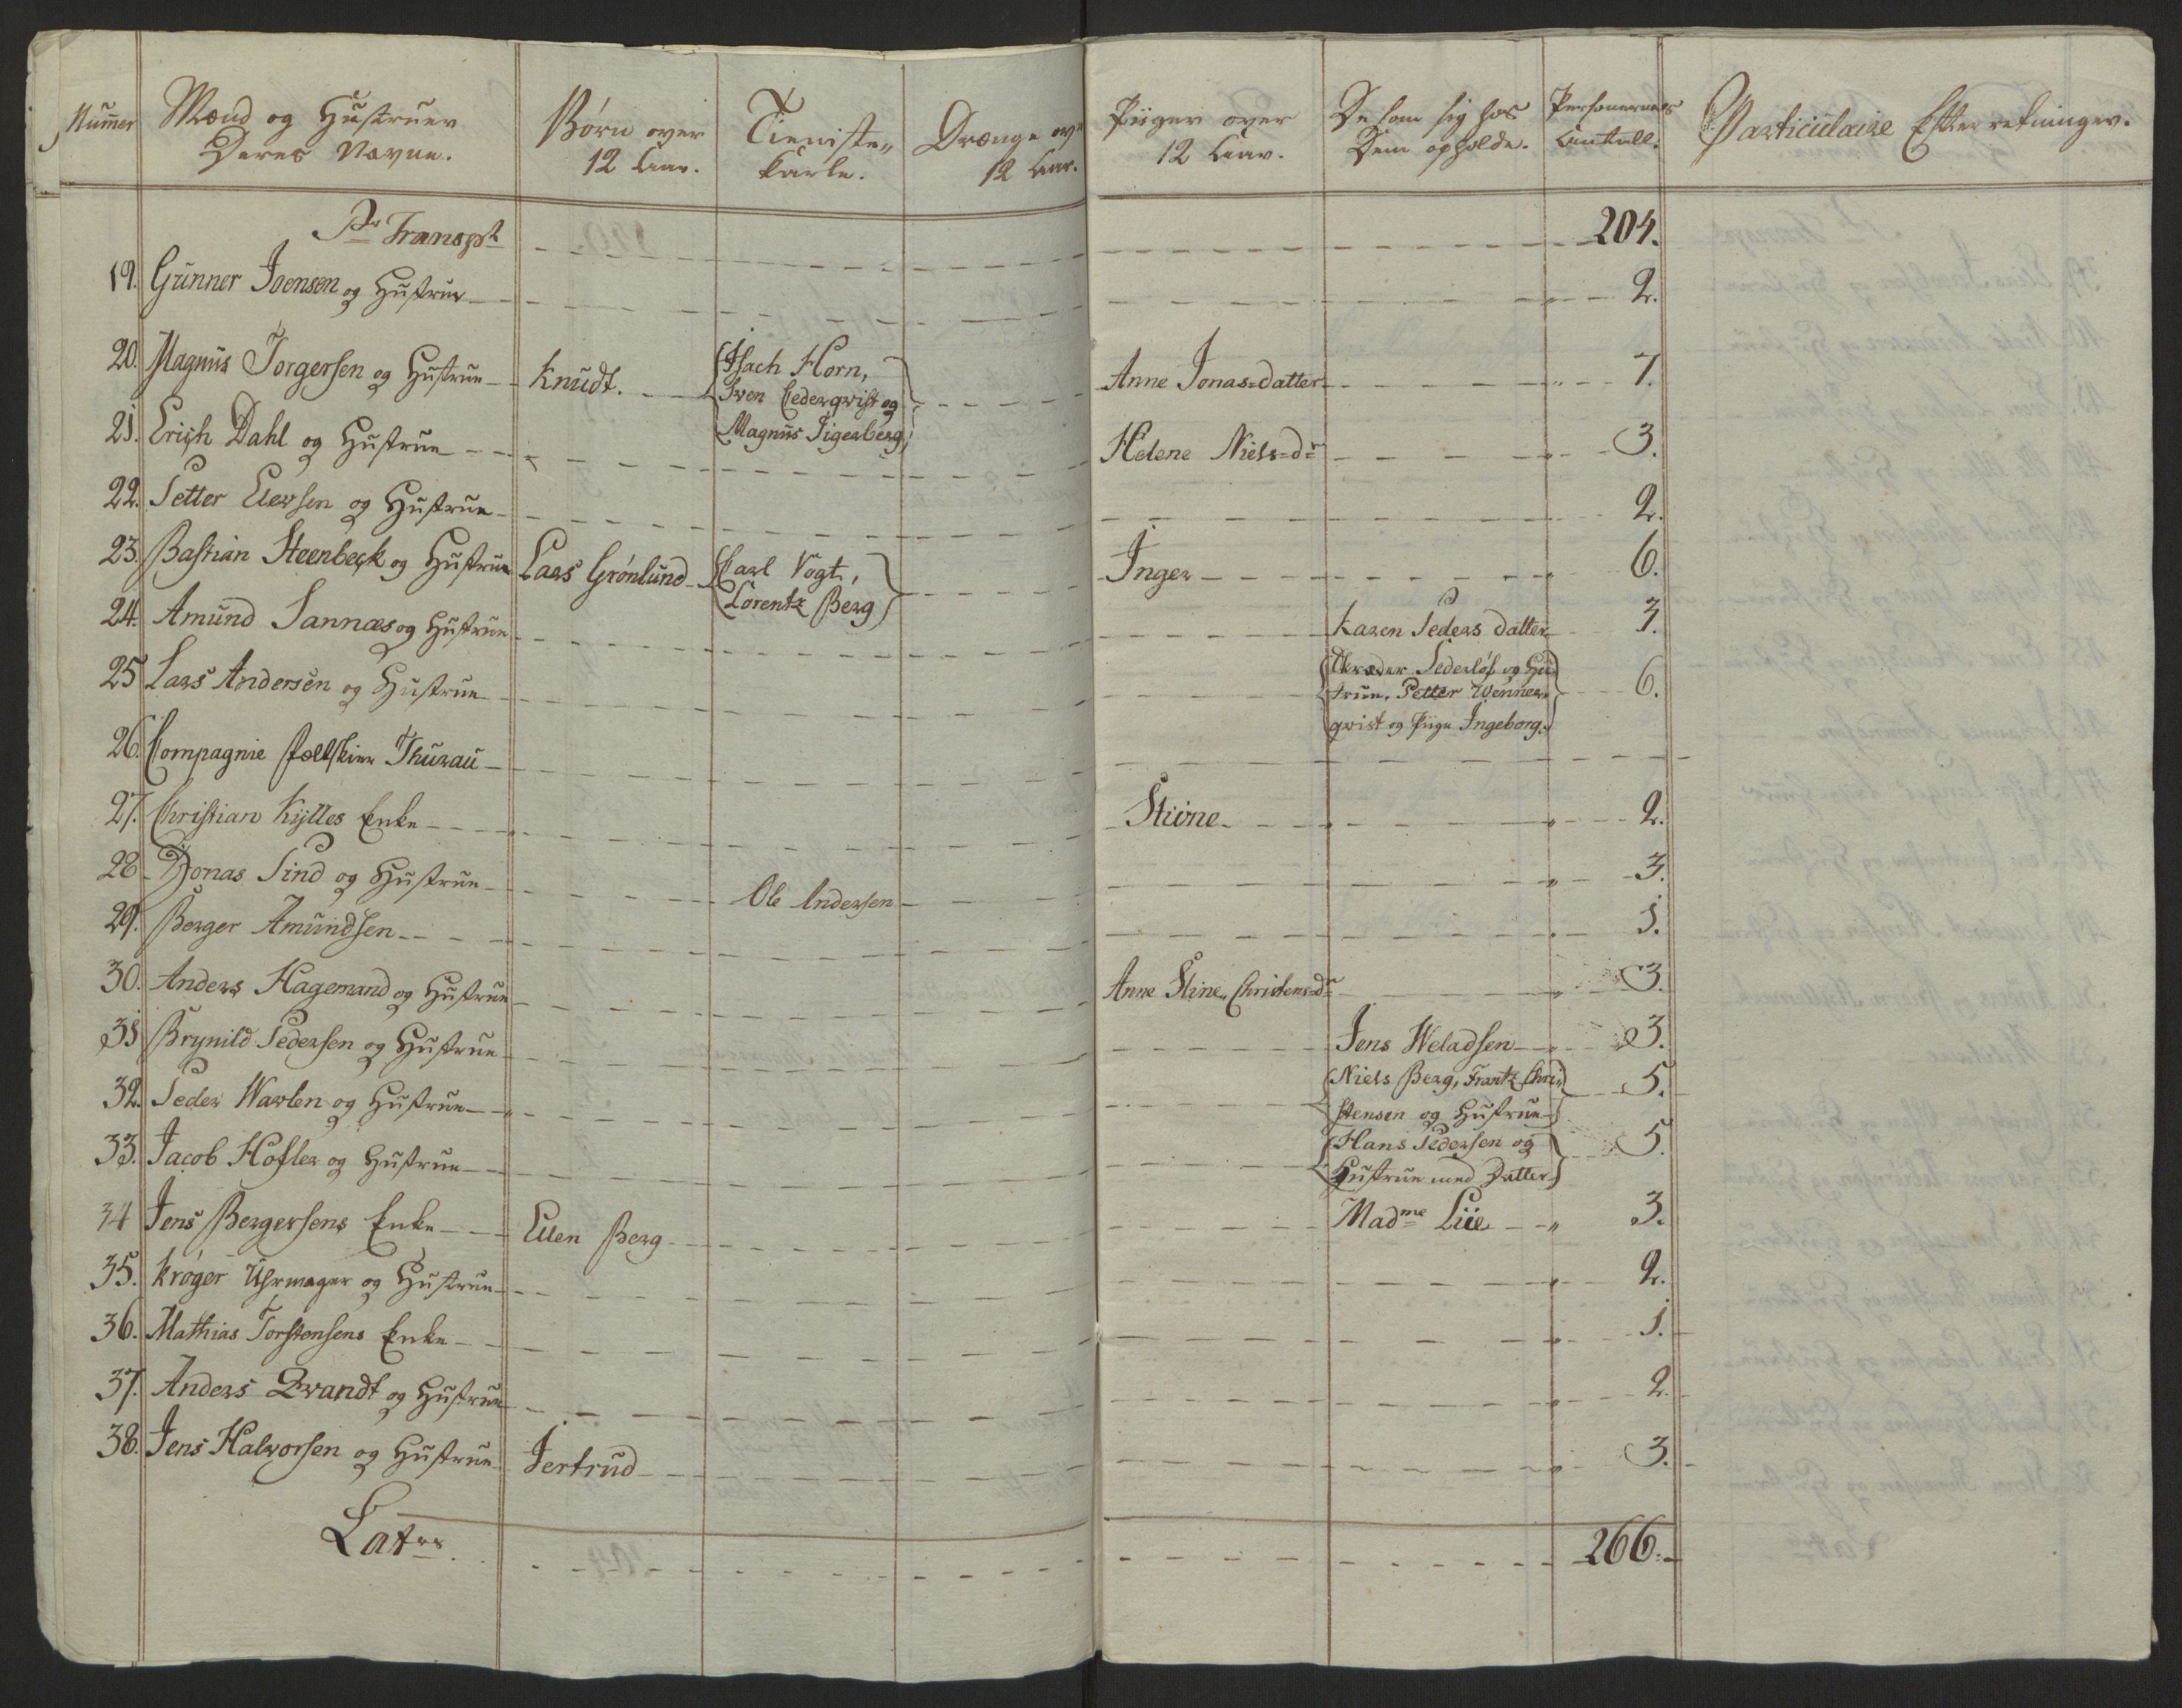 Numer Mænd og Hustruer Deres Navne. Børn over 12 Aar. Tieniste„ Karle. Drænge ov: 12 Aar. Piiger over 12 Aar. De som sig hos Dem opholde. Personernes Antall. Particulaire Efterretninger.
Pr Transpt 204.
19. Gunner Joensen og Hustrue 2.
20. Magnus Torgersen og Hustrue Knudt. Isach Horn, Anne Jonas=datter 7.
Sven Cederqvist og
Magnus Tigerberg,
21. Erich Dahl og Hustrue Helene Niels=dr 3.
22. Petter Elersen og Hustrue 2.
23. Bastian Steenbeck og Hustrue Lars Grønlund Carl Vogt, Inger 6.
Lorentz Berg
24. Amund Sannæs og Hustrue Karen Peders datter 3.
25 Lars Andersen og Hustrue Skræder Sederløf og Hus 6.
true, Petter Wenner
qvist og Piige Ingeborg.
26. Compagnie Thurau
27. Christian Kylles Enke Stiøne 2.
28 Jonas Lind og Hustrue Ole Andersen 3.
29. Berger Amundsen 1.
30. Anders Hagemand og Hustrue Anne Stine Christens=dr 3.
31 Brynild Pedersen og Hustrue Jens Weladsen 3.
32. Peder Warlen og Hustrue Niels Berg, Frantz Chri 5.
stensen og Hustrue
33. Jacob Hofler og Hustrue Hans Pedersen og 5.
Hustrue med Datter
34 Jens Bergersens Enke Ellen Berg Madme Lie 3.
35. Krøger Uhrmager og Hustrue 2.
36. Mathias Torstensens Enke 1.
37. Anders Qvandt og Hustrue 2.
38. Jens Halvorsen og Hustrue Jertrud 3.
Latus 266.